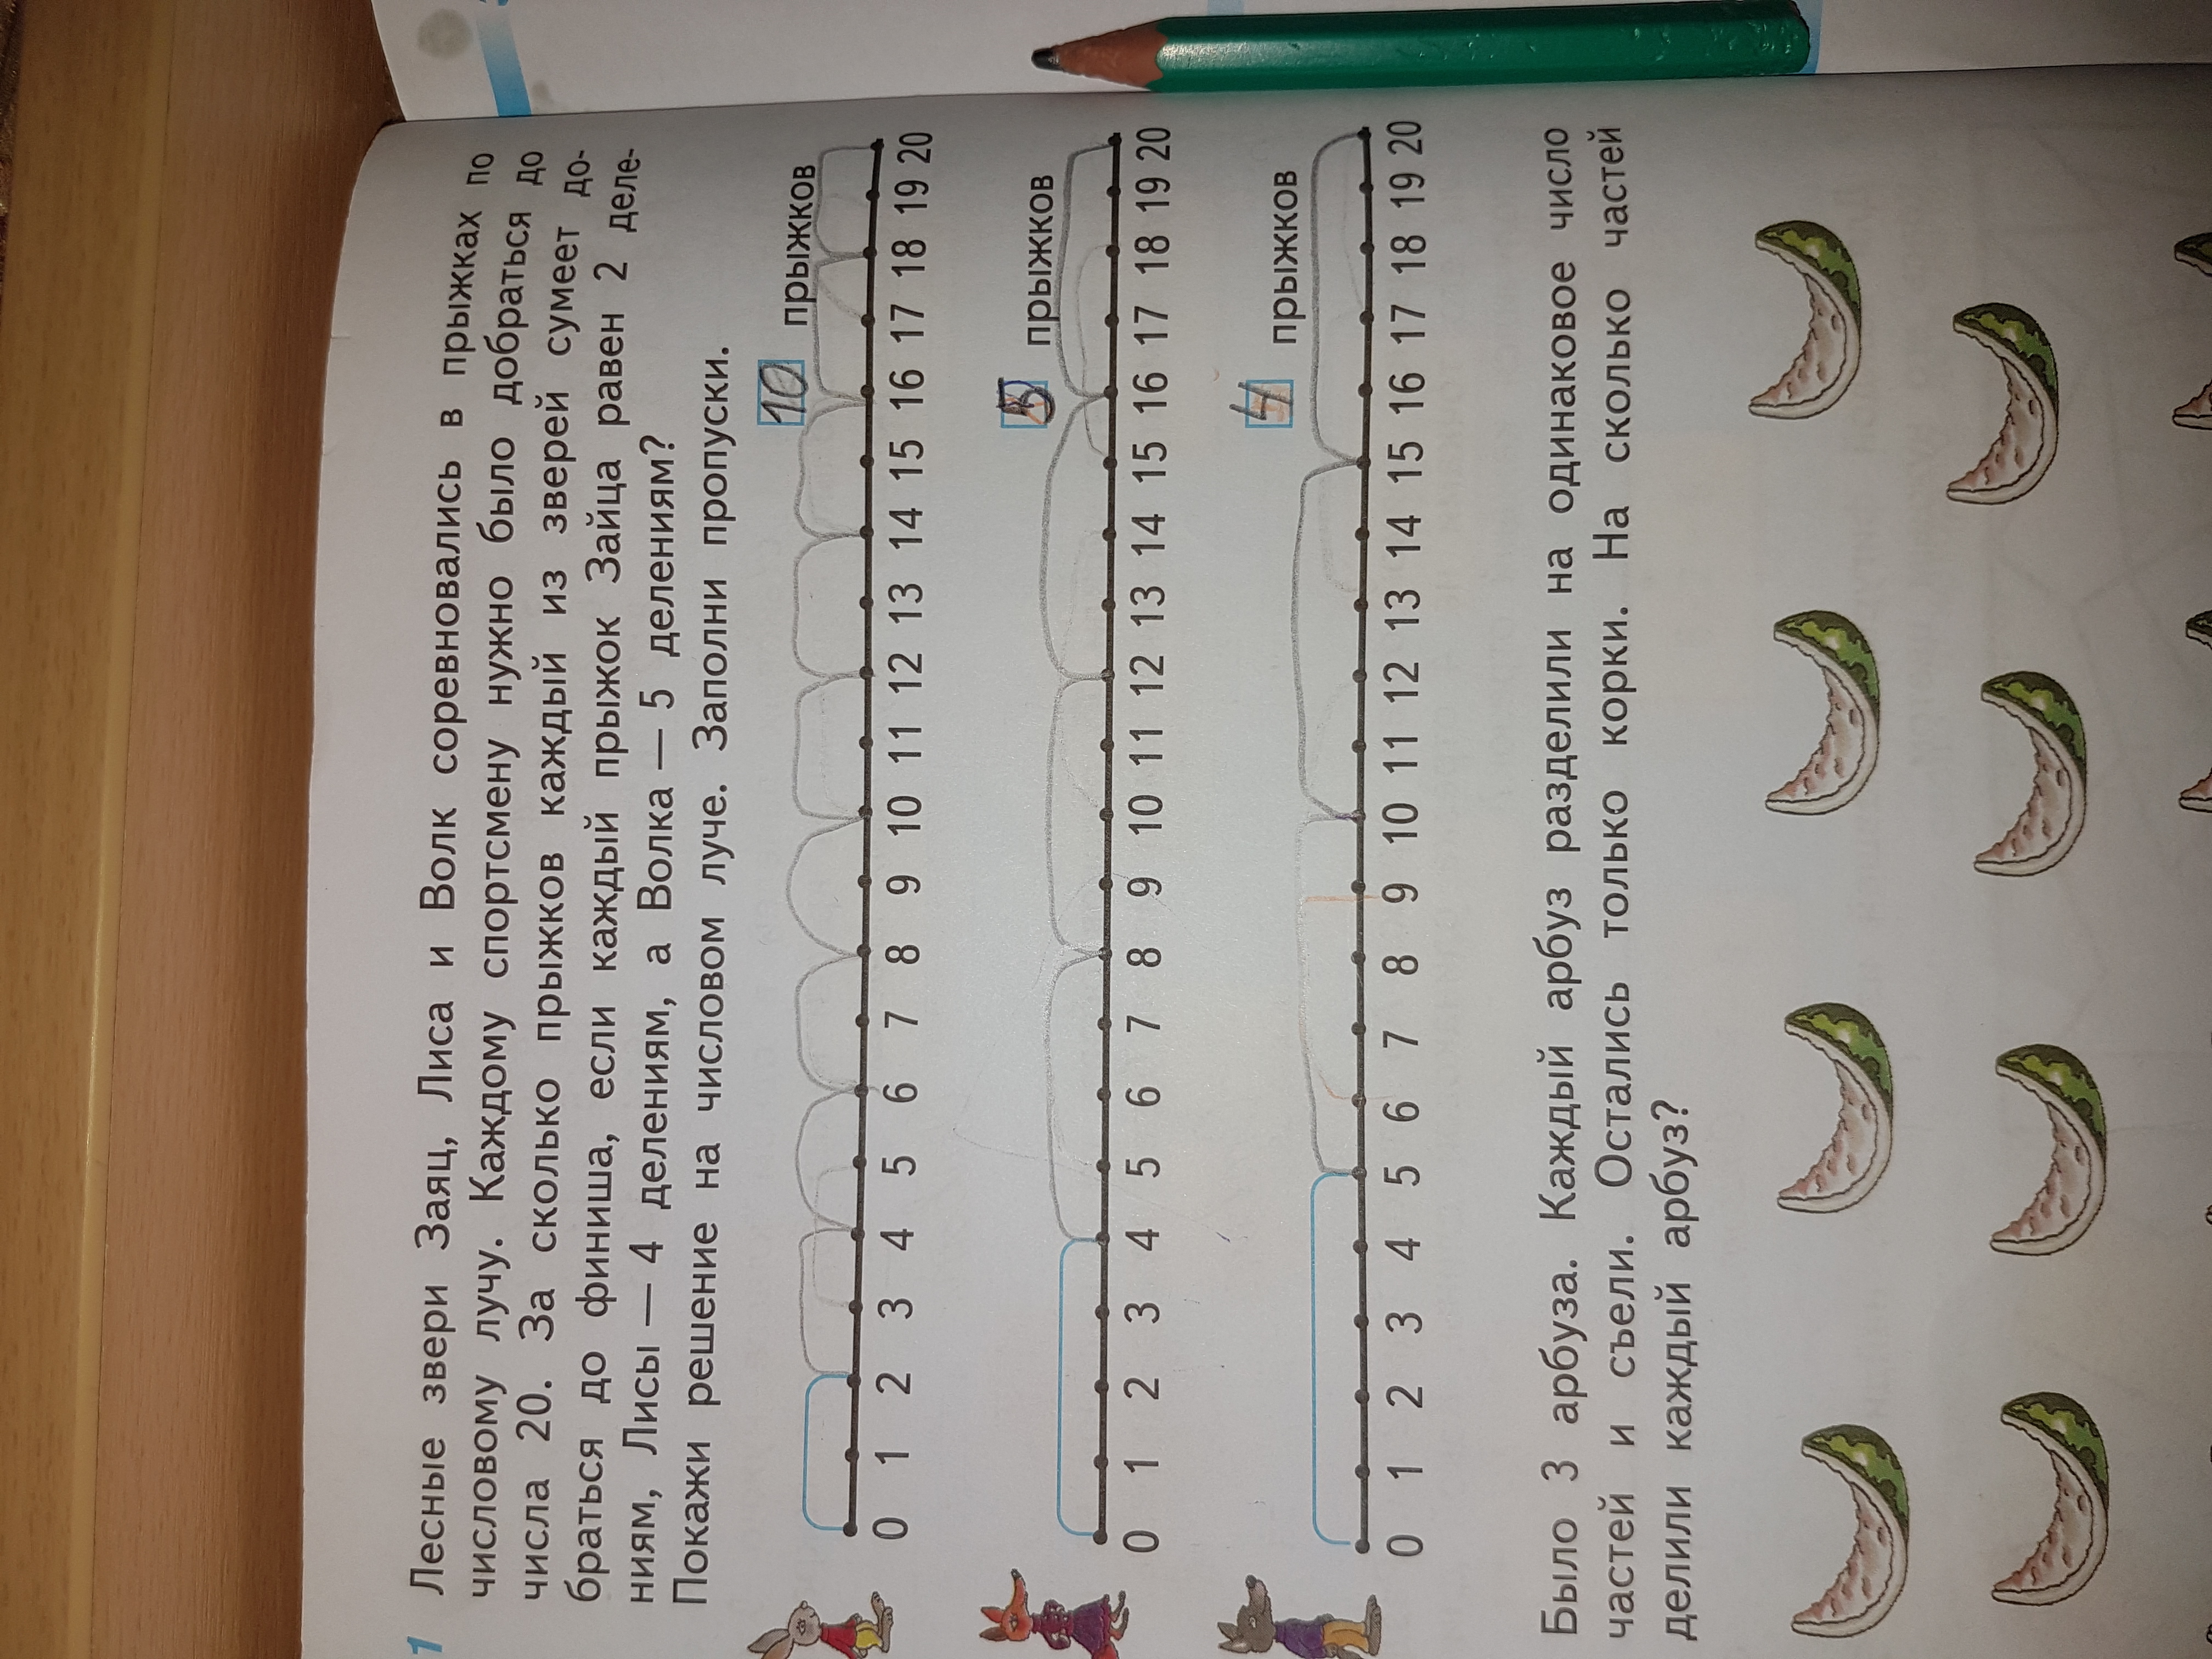 1 Лесные звери Заяц, Лиса и Волк соревновались в прыжках по
числовому лучу. Каждому спортсмену нужно было добраться до
числа 20. За сколько прыжков каждый из зверей сумеет до-
браться до финиша, если каждый прыжок Зайца равен 2 деле-
ниям, Лисы — 4 делениям, а Волка — 5 делениям?
Покажи решение на числовом луче. Заполни пропуски.
10 прыжков
0 1 2 3 4 5 6 7 8 9 10 11 12 13 14 15 16 17 18 19 20
5 прыжков
0 1 2 3 4 5 6 7 8 9 10 11 12 13 14 15 16 17 18 19 20
4 прыжков
0 1 2 3 4 5 6 7 8 9 10 11 12 13 14 15 16 17 18 19 20
Было 3 арбуза. Каждый арбуз разделили на одинаковое число
частей и съели. Остались только корки. На сколько частей
делили каждый арбуз?